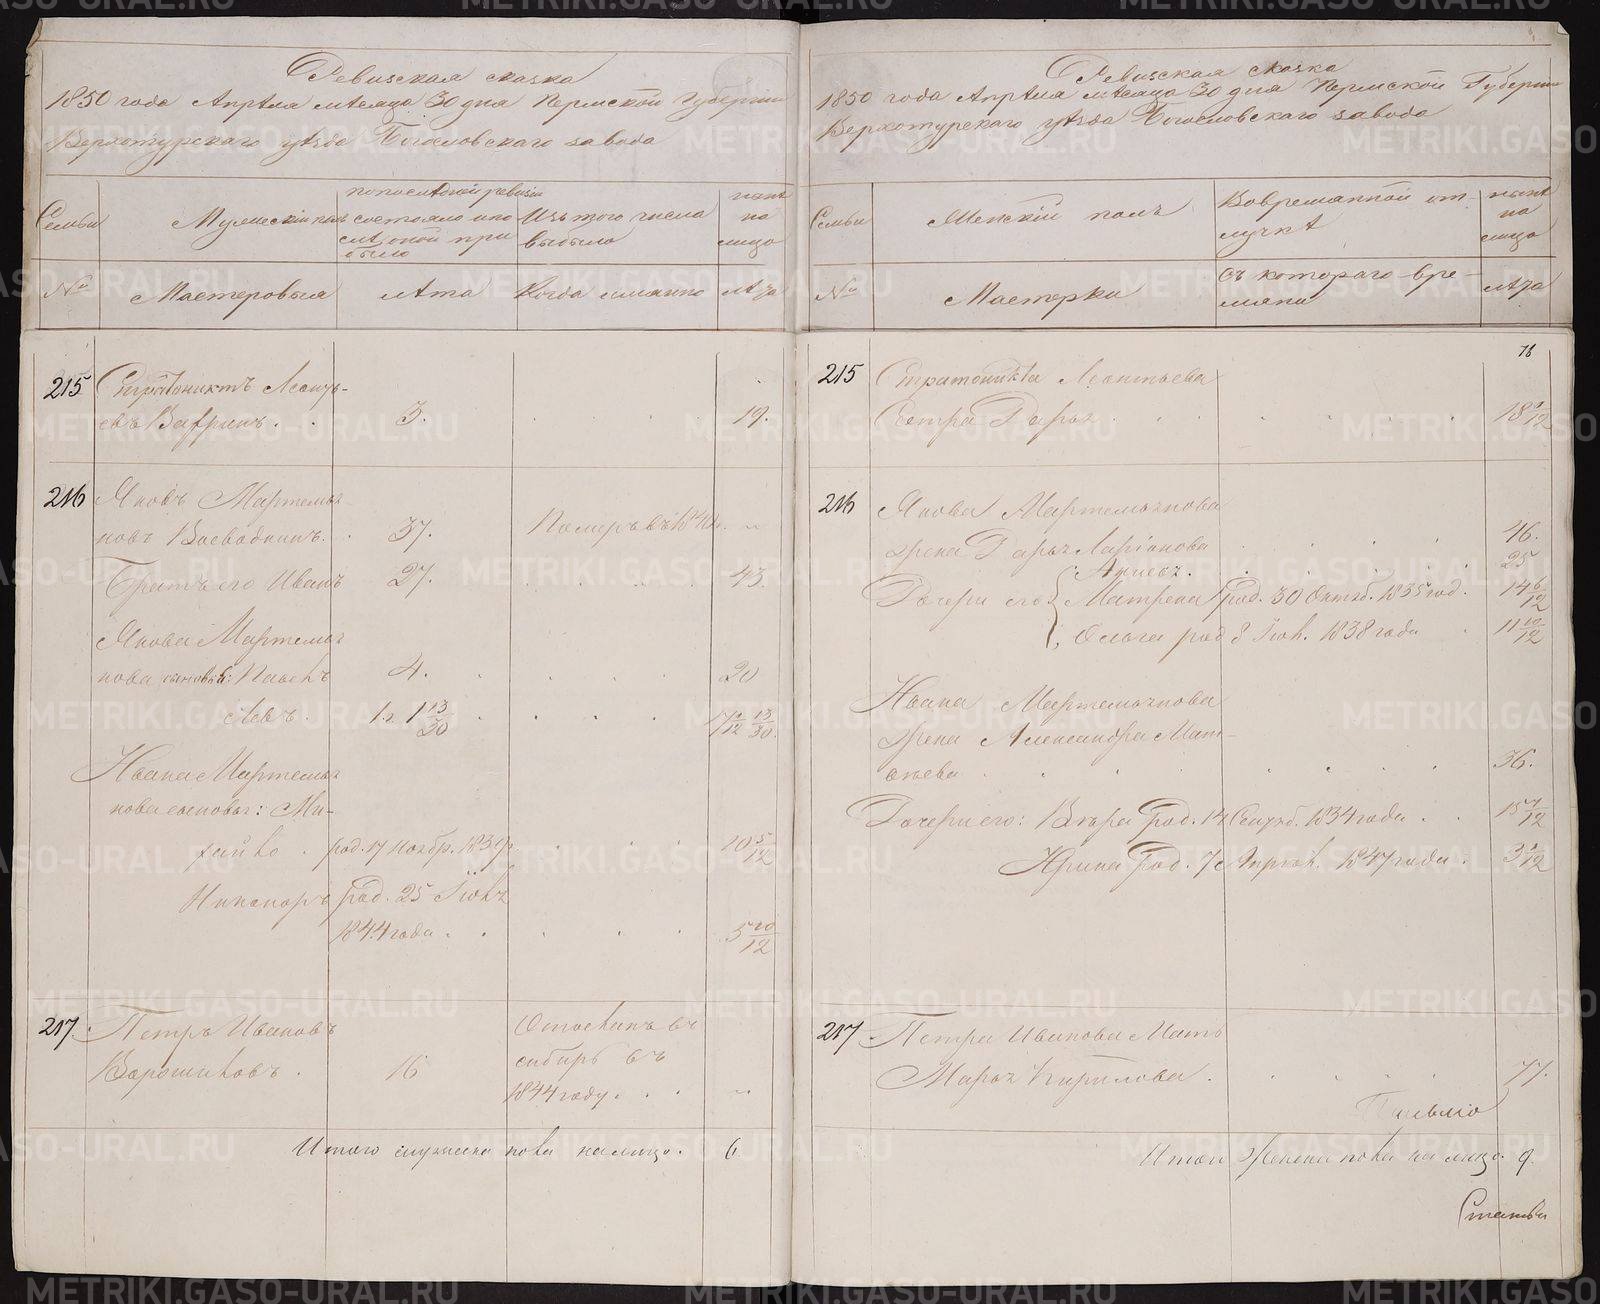 Ревизская сказка
1850 года Апрѣля мѣсяца 30 дня Пермской Губернии
Верхотурскаго уѣзда Богословскаго завода
Семьи
Мужескій полъ
по последней ревизіи
состояло и по
слѣ оной при
было
Изъ того числа
выбыло
нынѣ
на
лицо
№
Мастеровыя
лѣта
Когда имянно
лѣта
215
Стратоникъ Леонть-
евъ
3.
19.
216
Яковъ Мартемья-
новъ Воеводкинъ.
37.
Померъ въ
Братъ его Иванъ
27.
43.
Якова Мартемья
нова сыновья: Павелъ
4.
20
Левъ.
1 13/30
Ивана Мартемья
нова сыновья: Ми-
хайло
род. 17 Ноябр. 1839
10 5/12
Никаноръ род. 25 Іюня
1844 года
5 10/12
217.
Петръ Ивановъ
Ворошиловъ.
16
въ
сибирь въ
1844 году.
Итого мужеска пола на лицо.
6
Ревизская сказка
1850 года Апрѣля мѣсяца 30 дня Пермской Губернии
Верхотурскаго уѣзда Богословскаго завода
Семьи
Женскій полъ
Во временной от-
лучкѣ
нынѣ
на
лицо
№
Мастерки
Съ котораго вре-
мяни
лѣта
215
Стратоника Леонтьева
Сестра Дарья
18 1/12
216
Якова Мартемьянова
жена Дарья Ларіонова
46.
Анисья.
25
Дочери его
Матрена род. 30 Октяб. 1835 год.
14 6/12
Ольга род 8 Іюн. 1838 года
11 10/12
Ивана Мартемьянова
жена Александра Мат-
вѣева
36.
Дочери его: Вѣра род. 14 Сентяб. 1834 года
15 7/12
Ирина род. 7 Апрѣл. 1847 года
3 1/12
217
Петра Иванова Мать
Марья Кирилова.
77.
Итого Женска пола на лицо.
9.
METRIKI.GASO-URAL.RU